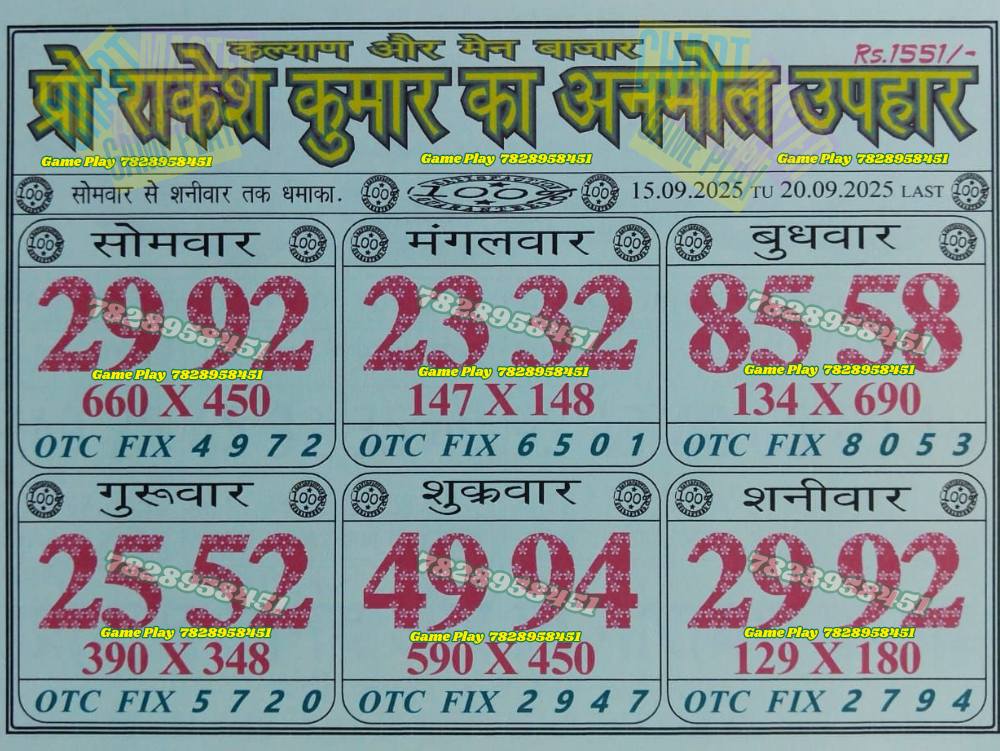 कल्याण और मेन बाजार
Rs.1551/-
प्रो राकेश कुमार का अनमोल उपहार
Game Play 7828958451 Game Play 7828958451 Game Play 7828958451
सोमवार से शनीवार तक धमाका. 100 15.09.2025 TU 20.09.2025 LAST
सोमवार
29 92
7828958451
Game Play 7828958451
660 X 450
OTC FIX 4 9 7 2
मंगलवार
23 32
7828958451
Game Play 7828958451
147 X 148
OTC FIX 6 5 0 1
बुधवार
85 58
7828958451
Game Play 7828958451
134 X 690
OTC FIX 8 0 5 3
गुरूवार
25 52
7828958451
Game Play 7828958451
390 X 348
OTC FIX 5 7 2 0
शुक्रवार
49 94
7828958451
Game Play 7828958451
590 X 450
OTC FIX 2 9 4 7
शनीवार
29 92
7828958451
Game Play 7828958451
129 X 180
OTC FIX 2 7 9 4